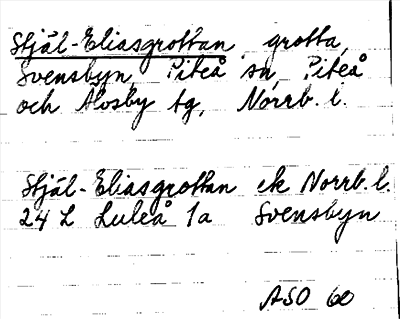 Stjäl-Eliasgrottan, grotta,
Svensbyn, Piteå sn, Piteå
och Älvsby tg, Norrb. l.
Stjäl-Eliasgrottan ek Norrb. l.
24 L Luleå 1a Svensbyn
ASO 60